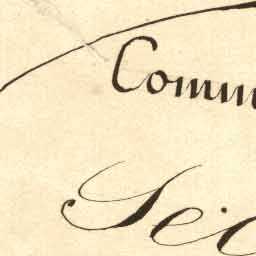 Comm
Sei